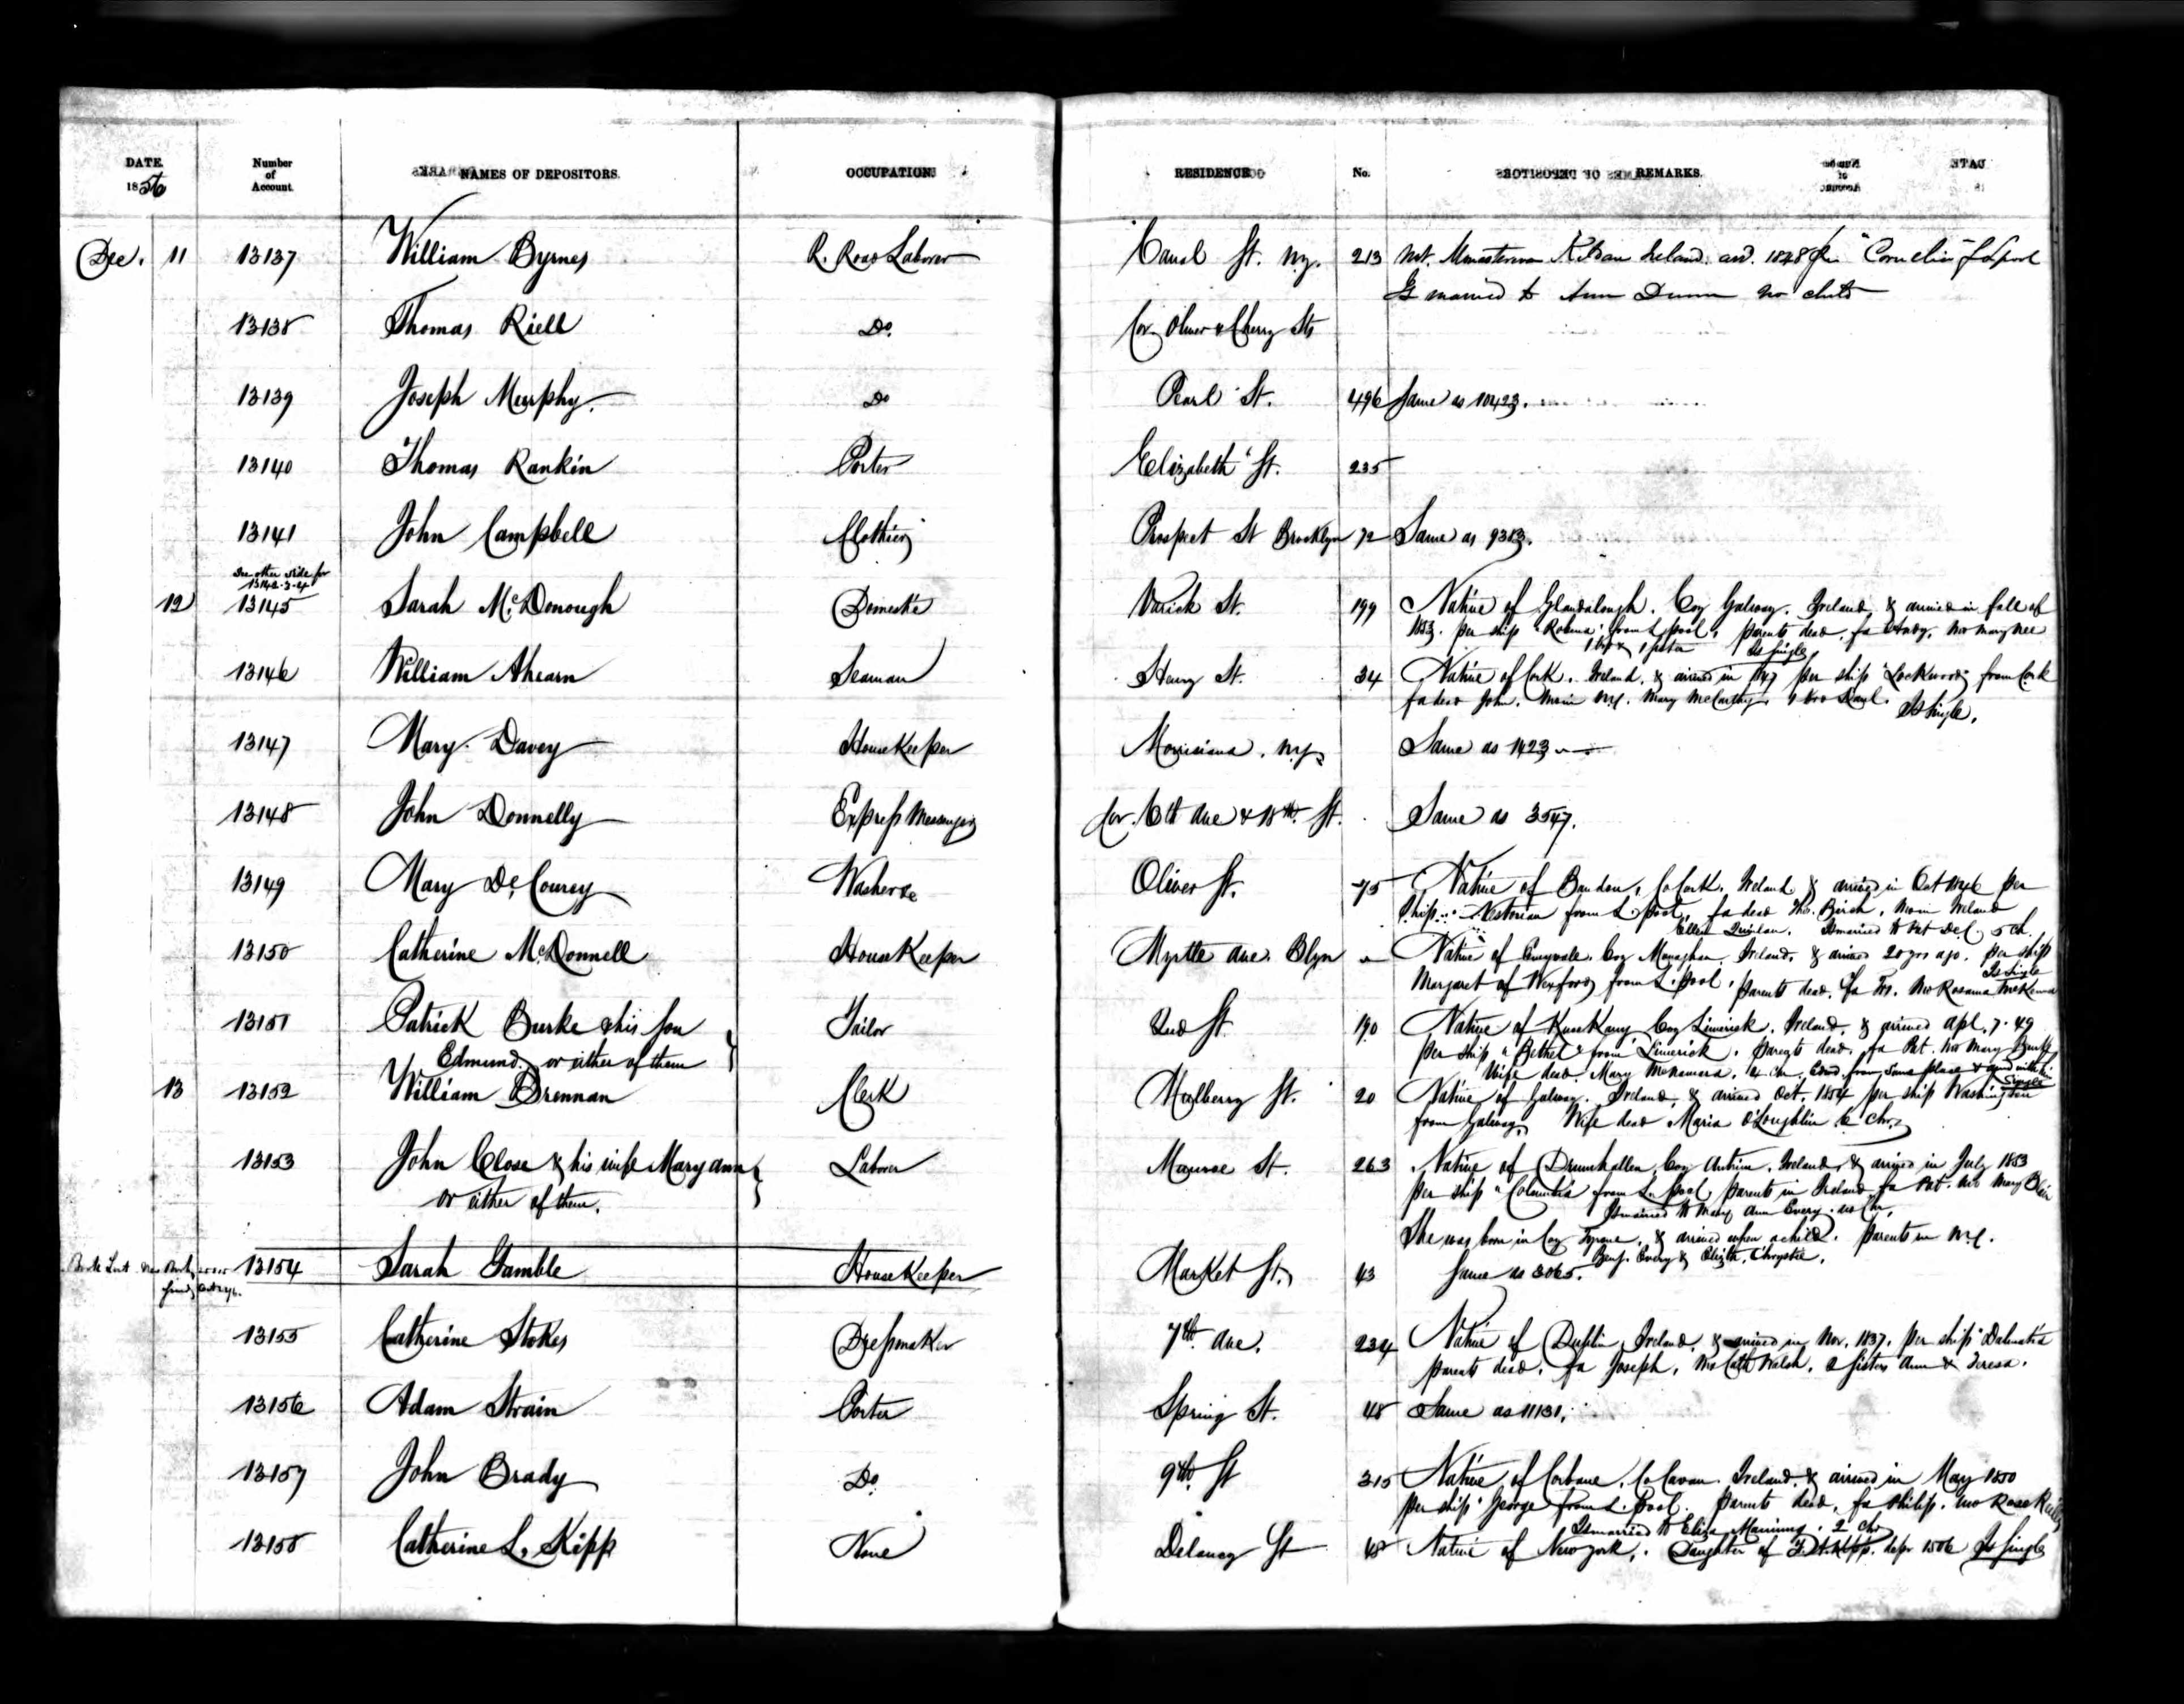 DATE.
1856
Number
of
Account.
NAMES OF DEPOSITORS.
OCCUPATION.
RESIDENCE
No.
REMARKS.
Dec. 11 13137 William Byrnes R. Road Laborer Canal St. N.Y. 213 Nat. Monasterevan Kildare Ireland. arr. 1848 per "Cornelia" f L.pool
Is married to Ann Dunn no child
13138 Thomas Riell Do. Cor. Oliver & Cherry Sts
13139 Joseph Murphy. Do Pearl St. 496 Same as 10423.
13140 Thomas Rankin Porter Elizabeth St. 235
13141 John Campbell Clothier Prospect St Brooklyn 72 Same as 9383.
See other side for
13142-3-4
12 13145 Sarah McDonough Domestic Varick St. 199 Native of Glandalough. Coy Galway. Ireland, & arrived in fall of
1853. per ship "Robena" from L.pool, parents dead, fa Andy, mo Mary Nee
1 bro & 1 sister Is single
13146 William Ahearn Seaman Henry St. 34 Native of Cork. Ireland, & arrived in 1847 per ship "Lockwood" from Cork
fa dead John. Mo in N.Y. Mary McCarthy, 1 bro Danl. Is Single.
13147 Mary Davey HouseKeeper Morrisiana. N.Y. Same as 1423
13148 John Donnelly Express Messenger Cor. 6th Ave & 18th St. Same as 3547.
13149 Mary DeCourcy Washer &c Oliver St. 75 Native of Bandon, Co Cork. Ireland & arrived in Oct 1846 per
Ship Nestorian from L.pool, fa dead Ths. Birch, Mo in Ireland
Ellen Quinlan. Is married to Pat DeC. 5 ch.
13150 Catherine McDonnell HouseKeeper Myrtle Ave. Blyn Native of Emyvale. Coy Monaghan, Ireland, & arrived 20 yrs ago. per ship
Margaret of Wexford from L.pool, parents dead. fa Ts. Mo Rosanna McKenna
Is Single
13151 Patrick Burke & his son Tailor Reed St 190 Native of Coy Limerick. Ireland, & arrived Apl. 7. 49
Edmund, or either of them per ship "Bethel" from Limerick. parents dead, fa Pat. Mo Mary
Wife dead. Mary McNamara. 4 chr. Edmd. from same place & arrd with him
Single
13 13152 William Brennan Clerk Mulberry St. 20 Native of Galway. Ireland, & arrived Oct. 1854 per ship Washington
from Galway, Wife dead Maria O'Loughlin 6 Chr.
13153 John Close & his wife Mary Ann Laborer Monroe St. 263 Native of Drumhallen, Coy Antrim. Ireland, & arrived in July 1853
or either of them. per ship "Columbia" from L.pool, parents in Ireland, fa Pat. Mo Mary Blair
Is married to Mary Ann Every. no Chr.
She was born in Coy Tyrone, & arrived when a child. parents in N.Y.
Benj. Every & Elizth. Chrystie.
Book Lost New Book
13154 Sarah Gamble HouseKeeper Market St. 43 Same as 3065.
13155 Catherine Stokes Dressmaker 7th Ave. 234 Native of Dublin, Ireland, & arrived in Nov. 1837. per ship "Dalmatia
parents dead, fa Joseph, Mo Cath Walsh, 2 sisters Ann & Teresa.
13156 Adam Strain Porter Spring St. 48 Same as 11131.
13157 John Brady Do. 9th St 315 Native of Corbane, Co Cavan. Ireland, & arrived in May 1850
per ship "George from L.pool. parents dead, fa Philip. Mo Rose Reilly
Is married to Eliza Manning. 2 chr
13158 Catherine L. Kipp None Delancy St 48 Native of New York. Daughter of Kipp. depr 1506 Is Single